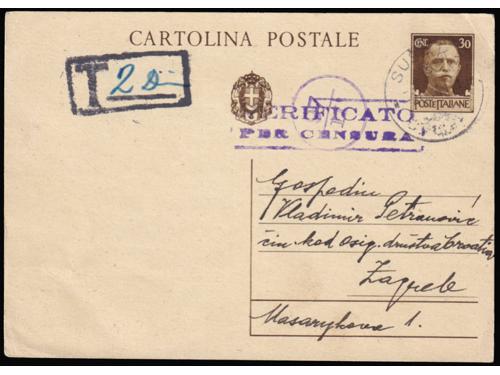 CARTOLINA POSTALE
T 2 Din
CENT. 30
POSTE ITALIANE
VERIFICATO
PER CENSURA
Gospodin
Vladimir Petranović
čin. kod osig. društva Croatia
Zagreb
Masarykova 1.